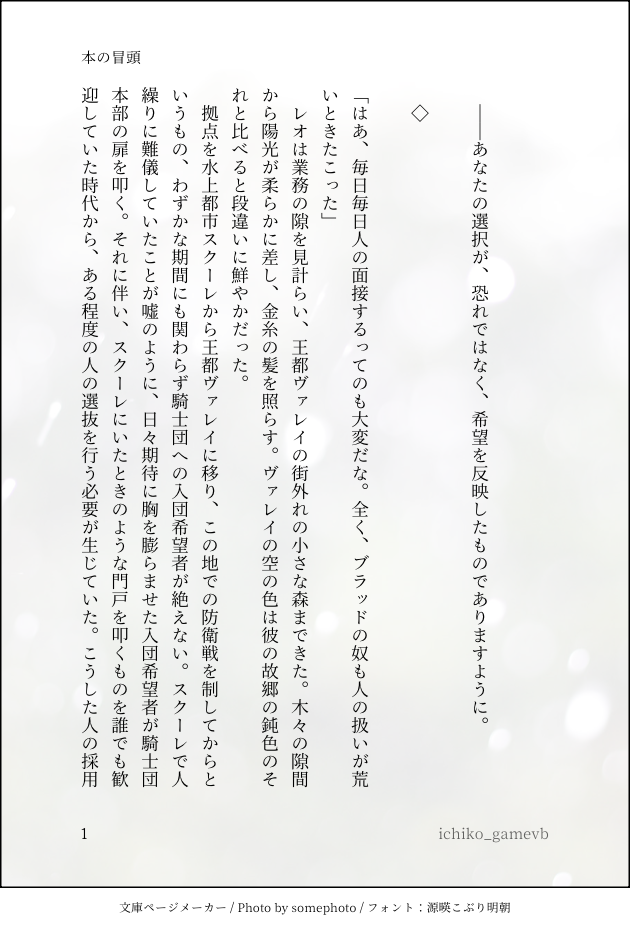 本の冒頭
――あなたの選択が、恐れではなく、希望を反映したものでありますように。
◇
「はあ、毎日毎日人の面接するってのも大変だな。全く、ブラッドの奴も人の扱いが荒
いときたこった」
レオは業務の隙を見計らい、王都ヴァレイの街外れの小さな森まできた。木々の隙間
から陽光が柔らかに差し、金糸の髪を照らす。ヴァレイの空の色は彼の故郷の鈍色のそ
れと比べると段違いに鮮やかだった。
拠点を水上都市スクーレから王都ヴァレイに移り、この地での防衛戦を制してからと
いうもの、わずかな期間にも関わらず騎士団への入団希望者が絶えない。スクーレで人
繰りに難儀していたことが嘘のように、日々期待に胸を膨らませた入団希望者が騎士団
本部の扉を叩く。それに伴い、スクーレにいたときのような門戸を叩くものを誰でも歓
迎していた時代から、ある程度の人の選抜を行う必要が生じていた。こうした人の採用
1
ichiko_gamevb
文庫ページメーカー / Photo by somephoto / フォント：源暎こぶり明朝